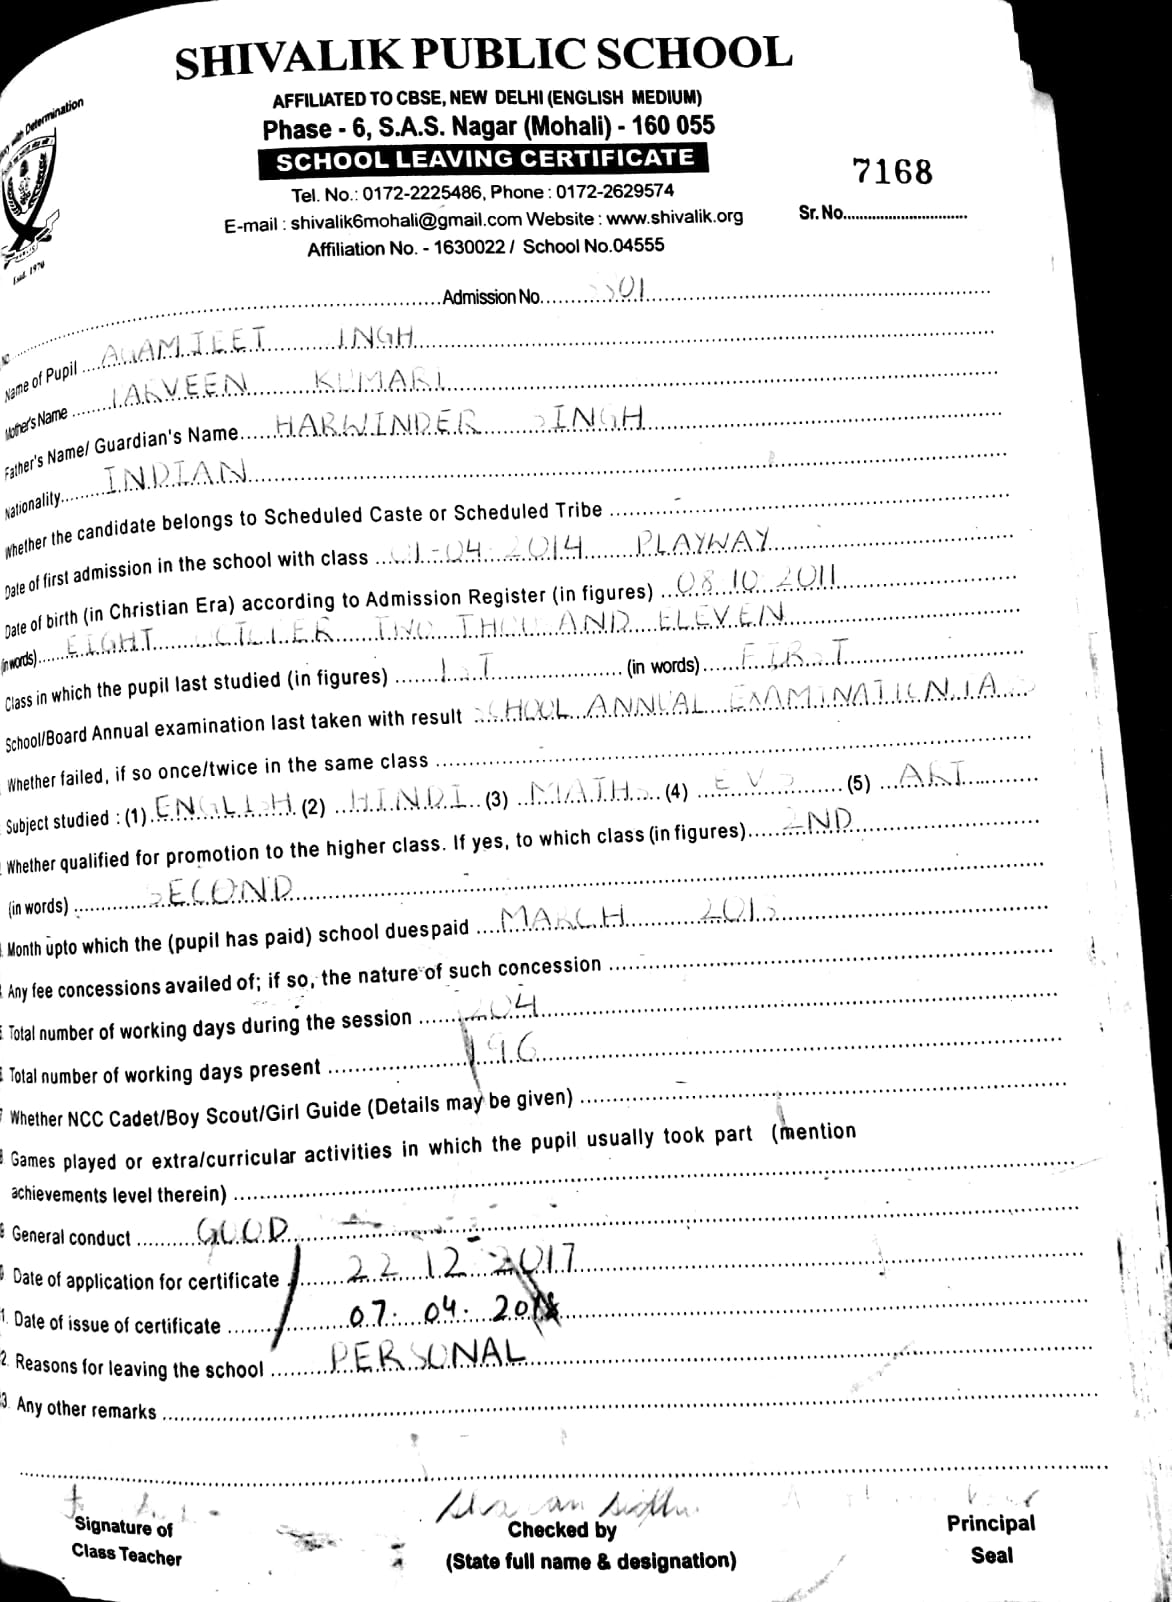 SHIVALIK PUBLIC SCHOOL
AFFILIATED TO CBSE, NEW DELHI (ENGLISH MEDIUM)
Phase - 6, S.A.S. Nagar (Mohali) - 160 055
SCHOOL LEAVING CERTIFICATE
7168
Tel. No.: 0172-2225486, Phone : 0172-2629574
Sr. No.
E-mail : shivalik6mohali@gmail.com Website : www.shivalik.org
Affiliation No. - 1630022 / School No.04555
Determination
Estd. 1970
Admission No. 01
Name of Pupil
Mother's Name KUMARI
Father's Name/ Guardian's Name HARWINDER SINGH
Nationality INDIAN
Whether the candidate belongs to Scheduled Caste or Scheduled Tribe -
Date of first admission in the school with class 01-04-2014 PLAYWAY
Date of birth (in Christian Era) according to Admission Register (in figures) 08.10.2011
(in words) EIGHT OCTOBER TWO THOUSAND ELEVEN
Class in which the pupil last studied (in figures) 1ST (in words) FIRST
School/Board Annual examination last taken with result SCHOOL ANNUAL EXAMINATION
Whether failed, if so once/twice in the same class -
Subject studied : (1) ENGLISH (2) HINDI (3) MATHS (4) EVS (5) ART
Whether qualified for promotion to the higher class. If yes, to which class (in figures) 2ND
(in words) SECOND
Month upto which the (pupil has paid) school duespaid MARCH
Any fee concessions availed of; if so, the nature of such concession -
Total number of working days during the session 204
Total number of working days present 196
Whether NCC Cadet/Boy Scout/Girl Guide (Details may be given) -
Games played or extra/curricular activities in which the pupil usually took part (mention
achievements level therein)
General conduct GOOD
Date of application for certificate 22 12 2017
Date of issue of certificate 07. 04.
Reasons for leaving the school PERSONAL
Any other remarks
Signature of
Class Teacher
Checked by
(State full name & designation)
Principal
Seal